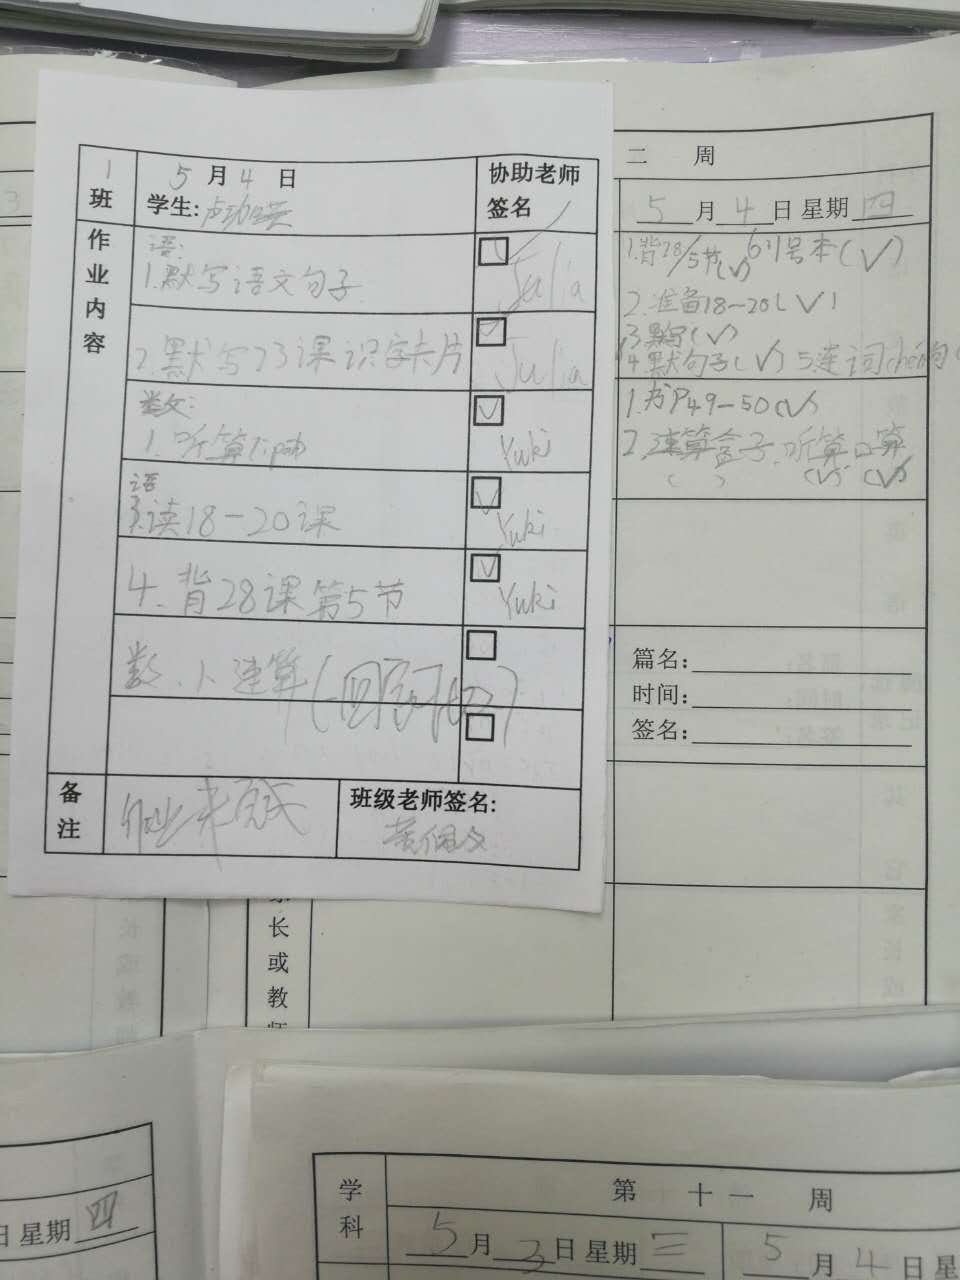 1
班
5月4日
学生:
协助老师
签名
作业内容
语:
1.默写语文句子
Julia
2.默写23课识字卡片
Julia
数:
1.听算
Yuki
语
3.读18-20课
Yuki
4.背28课第5节
Yuki
数.1.速算(回家
备注
作业未完成
班级老师签名:
二 周
5月4日 星期四
1.背28/5节(√) 6 1号本(√)
2.准备18-20(√)
3.默写(√)
4.默句子(√) 5.连词chéng句(
1.书P49-50(√)
2.速算盒子.听算 口算
( ) (√) (√)
篇名:
时间:
签名:
长或教师
日 星期四
学科
第 十一 周
5月3日 星期三
5月4日 星